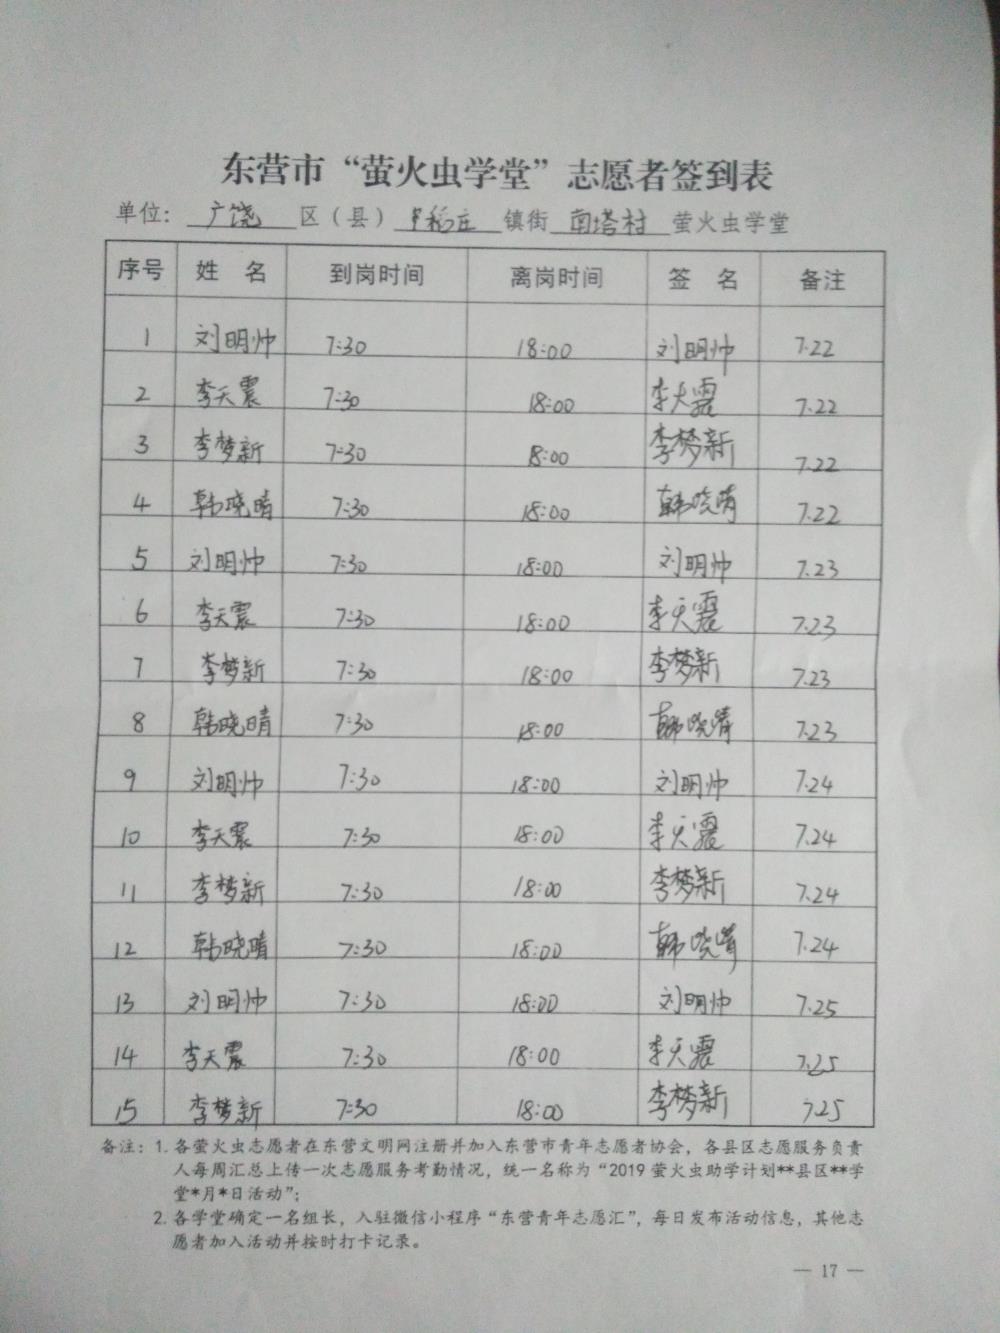 东营市“萤火虫学堂”志愿者签到表
单位： 广饶 区（县） 稻庄 镇街 南塔村 萤火虫学堂
序号 姓 名 到岗时间 离岗时间 签 名 备注
1 刘明帅 7:30 18:00 刘明帅 7.22
2 李天震 7:30 18:00 李天震 7.22
3 李梦新 7:30 18:00 李梦新 7.22
4 韩晓晴 7:30 18:00 韩晓晴 7.22
5 刘明帅 7:30 18:00 刘明帅 7.23
6 李天震 7:30 18:00 李天震 7.23
7 李梦新 7:30 18:00 李梦新 7.23
8 韩晓晴 7:30 18:00 韩晓晴 7.23
9 刘明帅 7:30 18:00 刘明帅 7.24
10 李天震 7:30 18:00 李天震 7.24
11 李梦新 7:30 18:00 李梦新 7.24
12 韩晓晴 7:30 18:00 韩晓晴 7.24
13 刘明帅 7:30 18:00 刘明帅 7.25
14 李天震 7:30 18:00 李天震 7.25
15 李梦新 7:30 18:00 李梦新 7.25
备注：1. 各萤火虫志愿者在东营文明网注册并加入东营市青年志愿者协会，各县区志愿服务负责
人每周汇总上传一次志愿服务考勤情况，统一名称为“2019 萤火虫助学计划**县区**学
堂*月*日活动”；
2. 各学堂确定一名组长，入驻微信小程序“东营青年志愿汇”，每日发布活动信息，其他志
愿者加入活动并按时打卡记录。
— 17 —